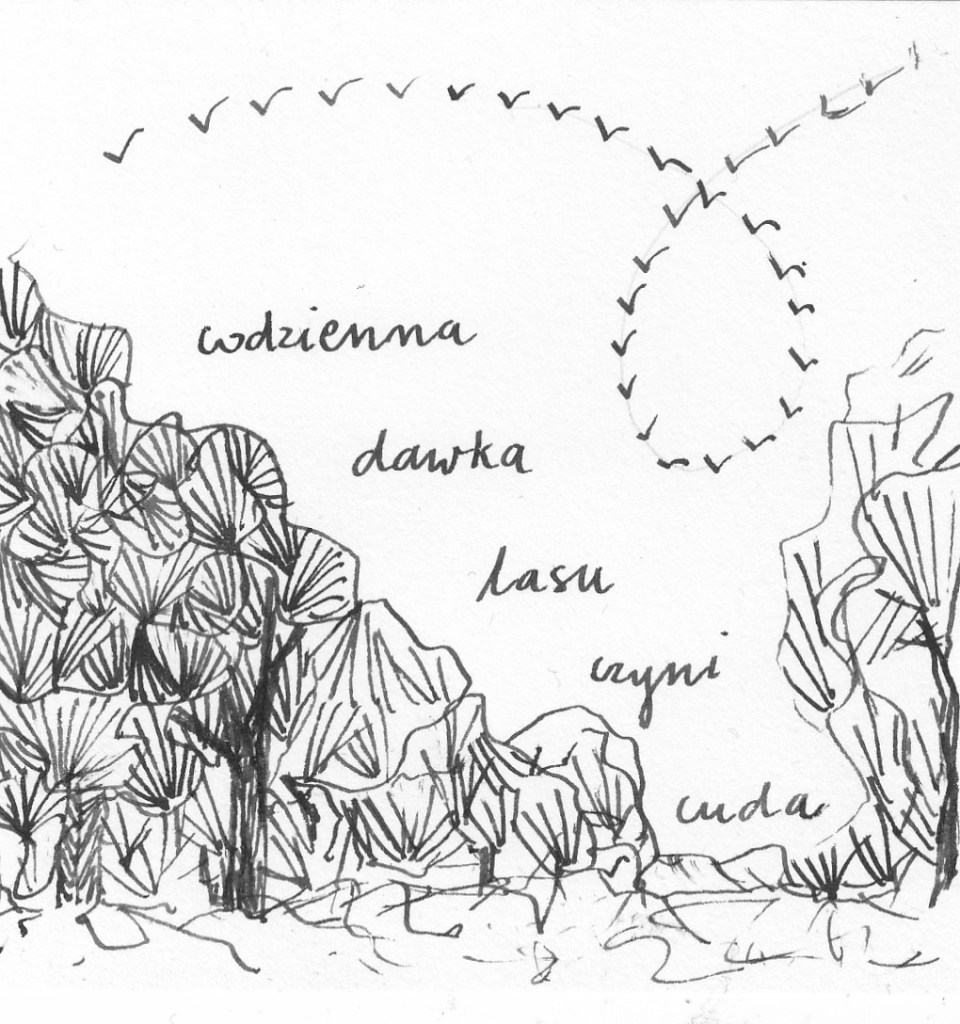 codzienna
dawka
lasu
czyni
cuda